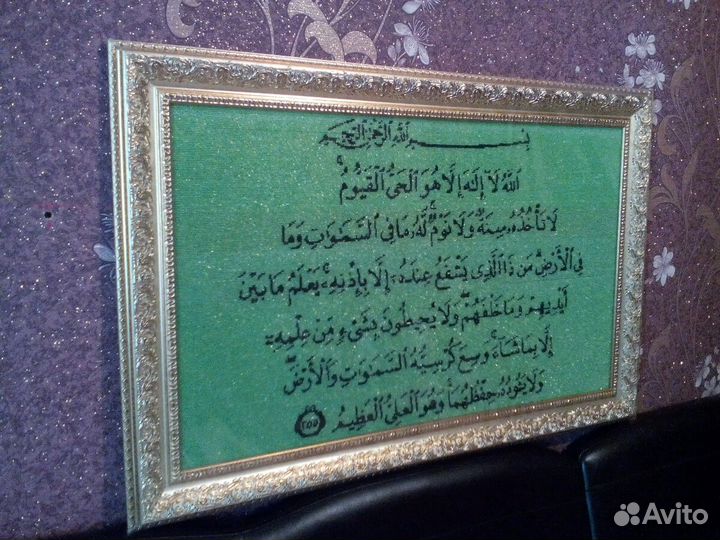 بسم الله الرحمن الرحيم
ٱللَّهُ لَآ إِلَٰهَ إِلَّا هُوَ ٱلْحَىُّ ٱلْقَيُّومُ ۚ
لَا تَأْخُذُهُۥ سِنَةٌ وَلَا نَوْمٌ ۚ لَّهُۥ مَا فِى ٱلسَّمَٰوَٰتِ وَمَا
فِى ٱلْأَرْضِ ۗ مَن ذَا ٱلَّذِى يَشْفَعُ عِندَهُۥٓ إِلَّا بِإِذْنِهِۦ ۚ يَعْلَمُ مَا بَيْنَ
أَيْدِيهِمْ وَمَا خَلْفَهُمْ ۖ وَلَا يُحِيطُونَ بِشَىْءٍ مِّنْ عِلْمِهِۦٓ
إِلَّا بِمَا شَآءَ ۚ وَسِعَ كُرْسِيُّهُ ٱلسَّمَٰوَٰتِ وَٱلْأَرْضَ ۖ
وَلَا يَـُٔودُهُۥ حِفْظُهُمَا ۚ وَهُوَ ٱلْعَلِىُّ ٱلْعَظِيمُ ٢٥٥
Avito